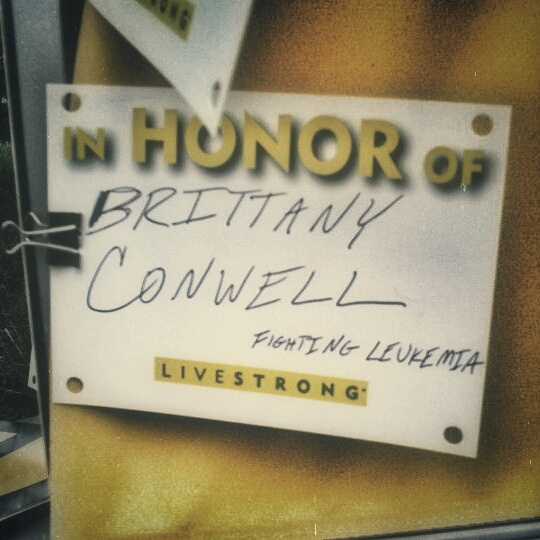 RONG
IN HONOR OF
BRITTANY
CONWELL
FIGHTING LEUKEMIA
LIVESTRONG